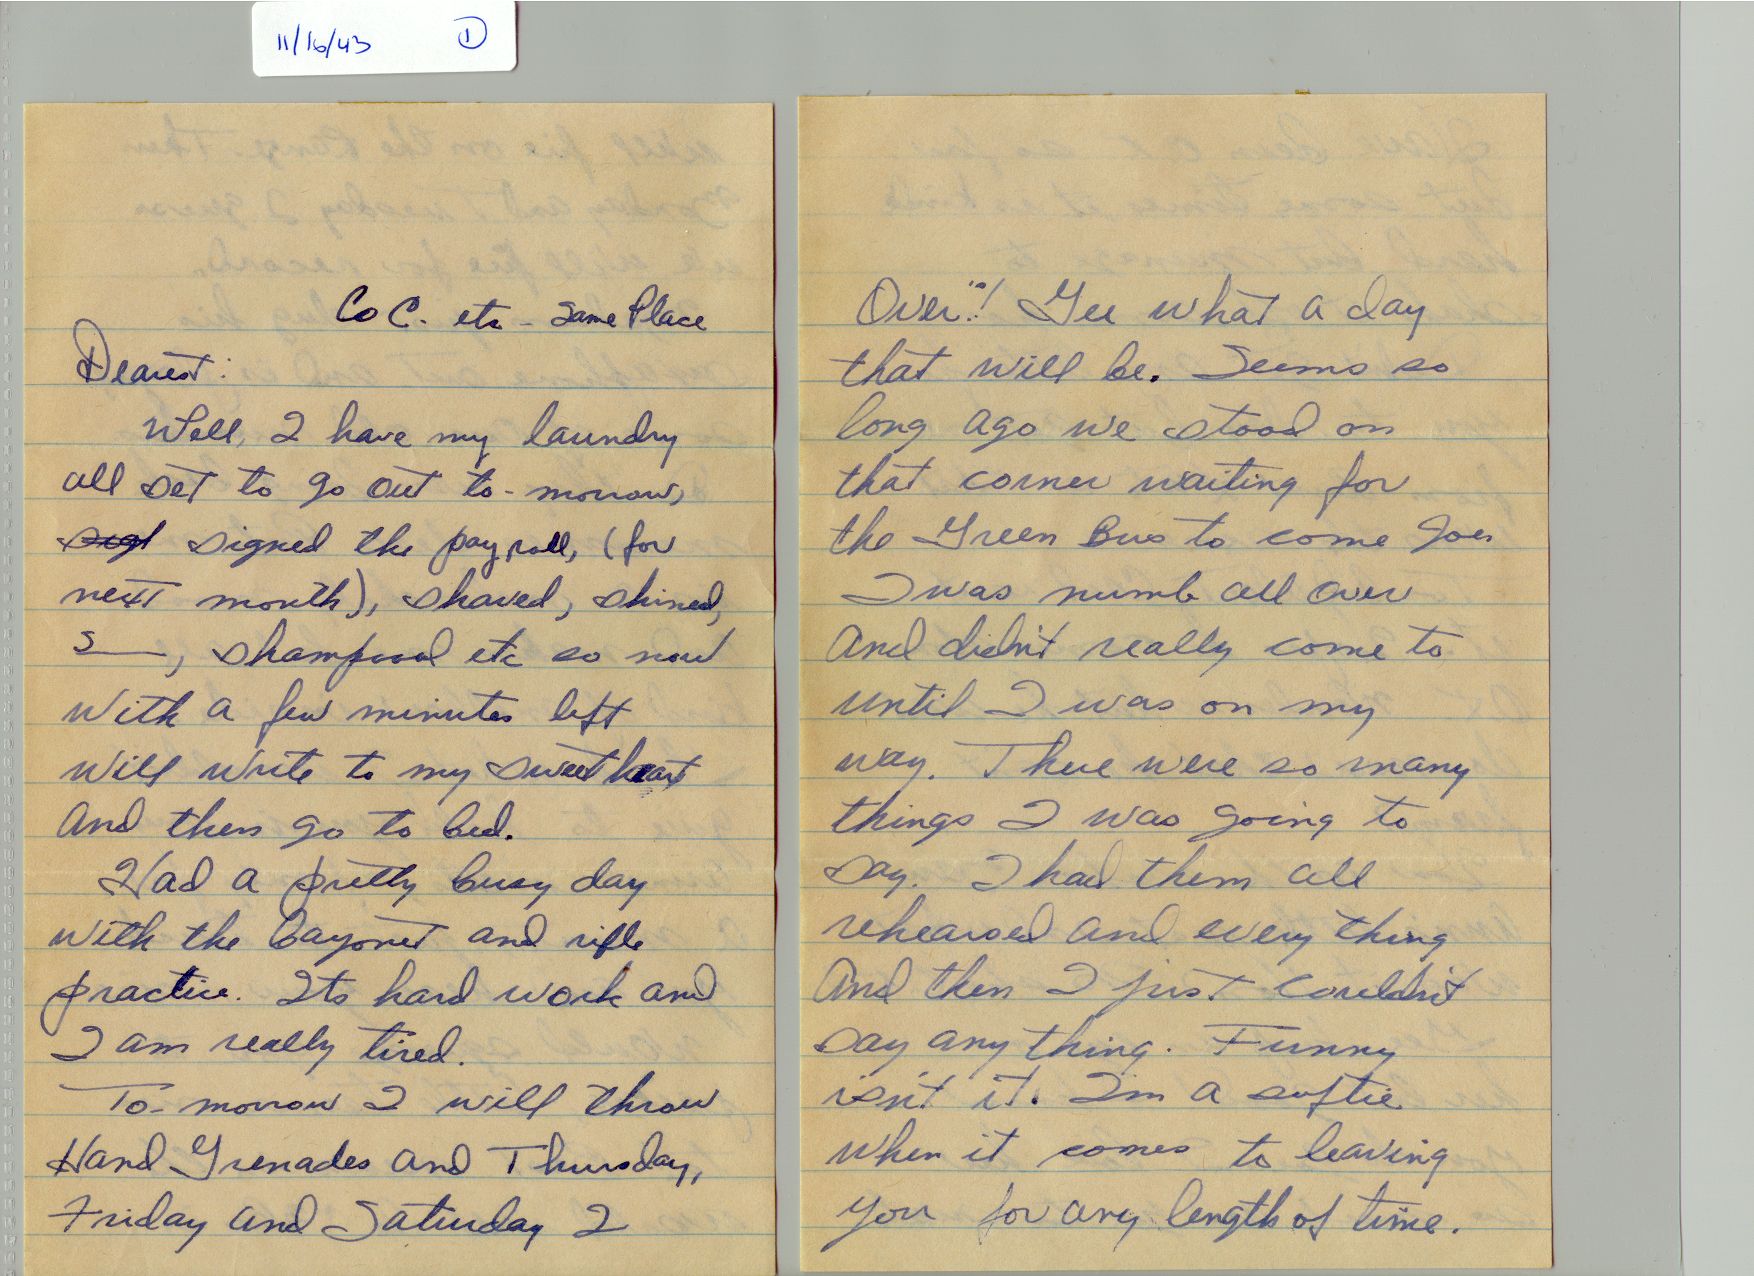 11/16/43 1
Co C. etc - Same Place
Dearest:
Well, I have my laundry
all set to go out to-morrow,
sigd signed the payroll, (for
next month), shaved, shined,
S——, shampood etc so now
with a few minutes left
will write to my sweetheart
and then go to bed.
Had a pretty busy day
with the bayonet and rifle
practice. Its hard work and
I am really tired.
To-morrow I will throw
Hand Grenades and Thursday,
Friday and Saturday I
Over"! Gee what a day
that will be. Seems so
long ago we stood on
that corner waiting for
the Green Bus to come
I was numb all over
and didn't really come to
until I was on my
way. There were so many
things I was going to
say. I had them all
rehearsed and every thing
and then I just couldn't
say any thing. Funny
isn't it. I'm a softie
when it comes to leaving
you for any length of time.